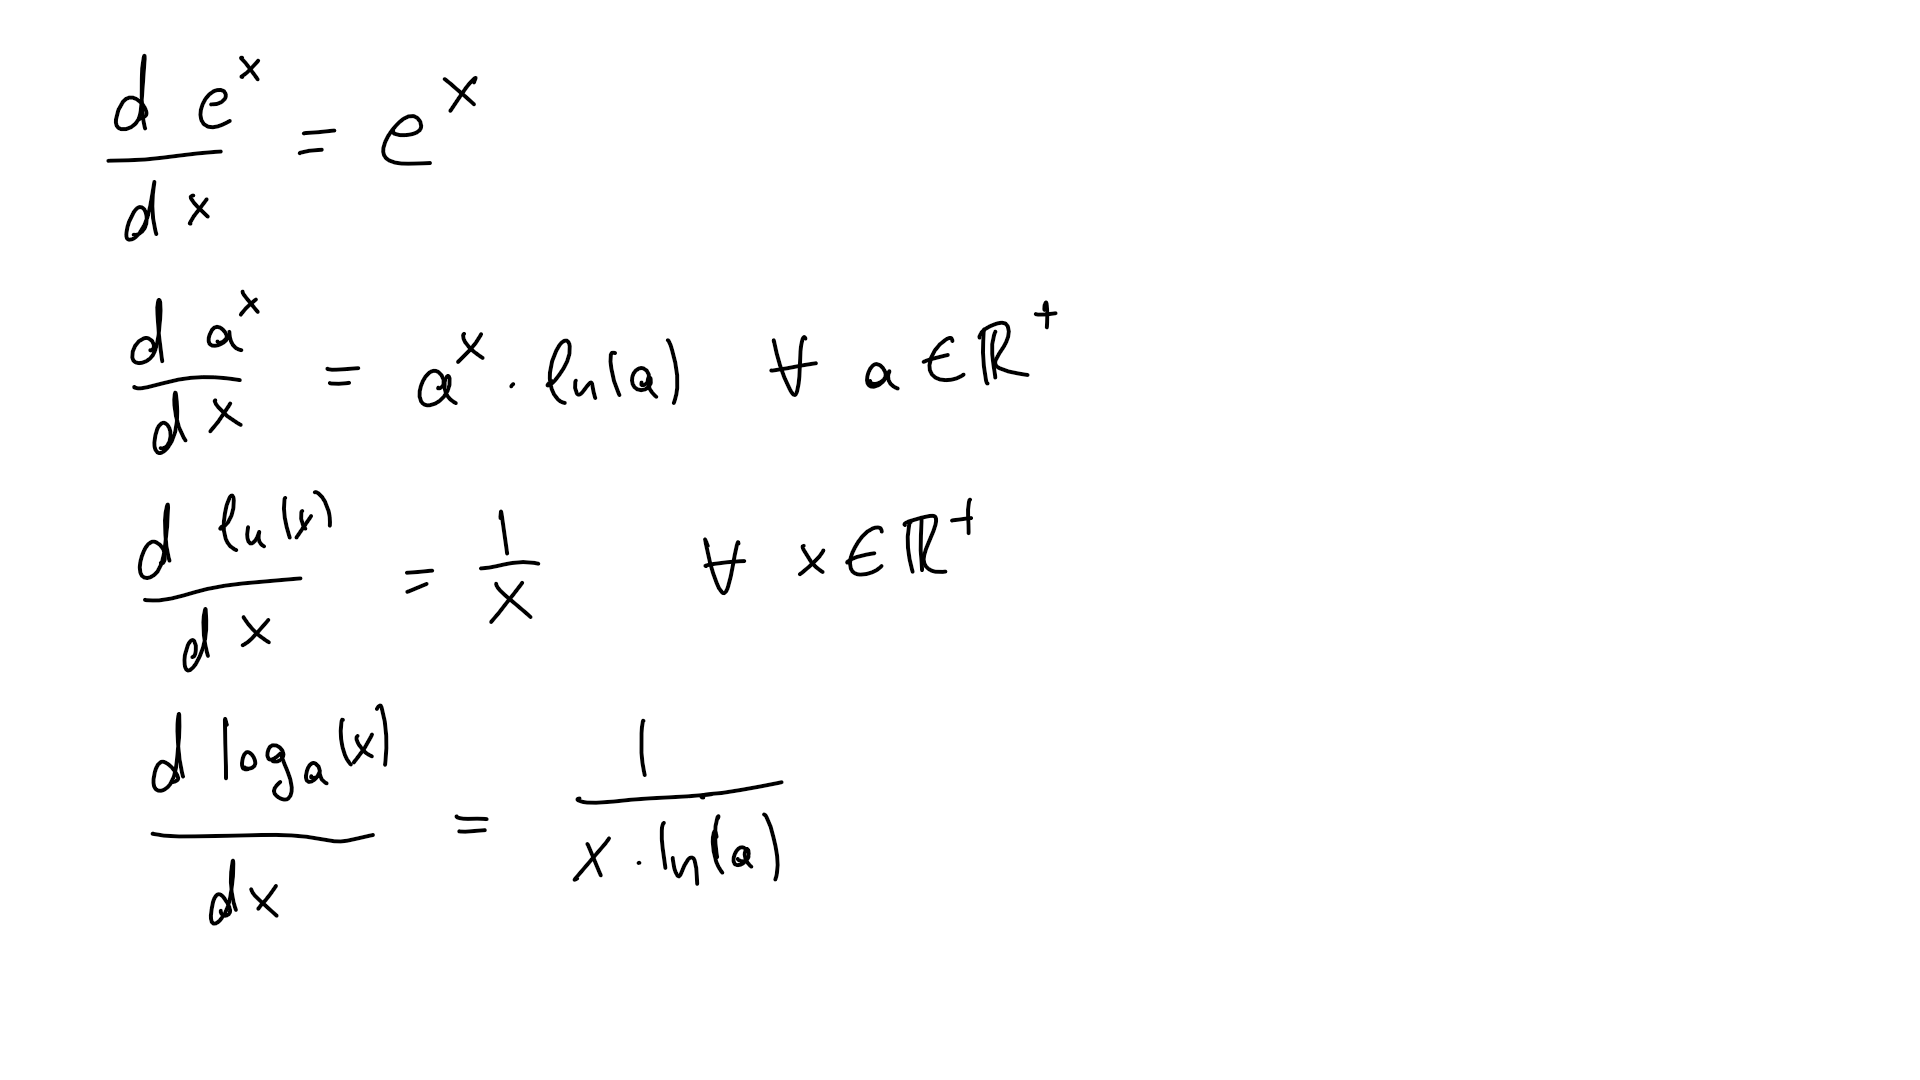 \frac{d e^x}{dx} = e^x
\frac{d a^x}{dx} = a^x \cdot \ln(a) \quad \forall \quad a \in \mathbb{R}^+
\frac{d \ln(x)}{dx} = \frac{1}{x} \quad \forall \quad x \in \mathbb{R}^+
\frac{d \log_a(x)}{dx} = \frac{1}{x \cdot \ln(a)}